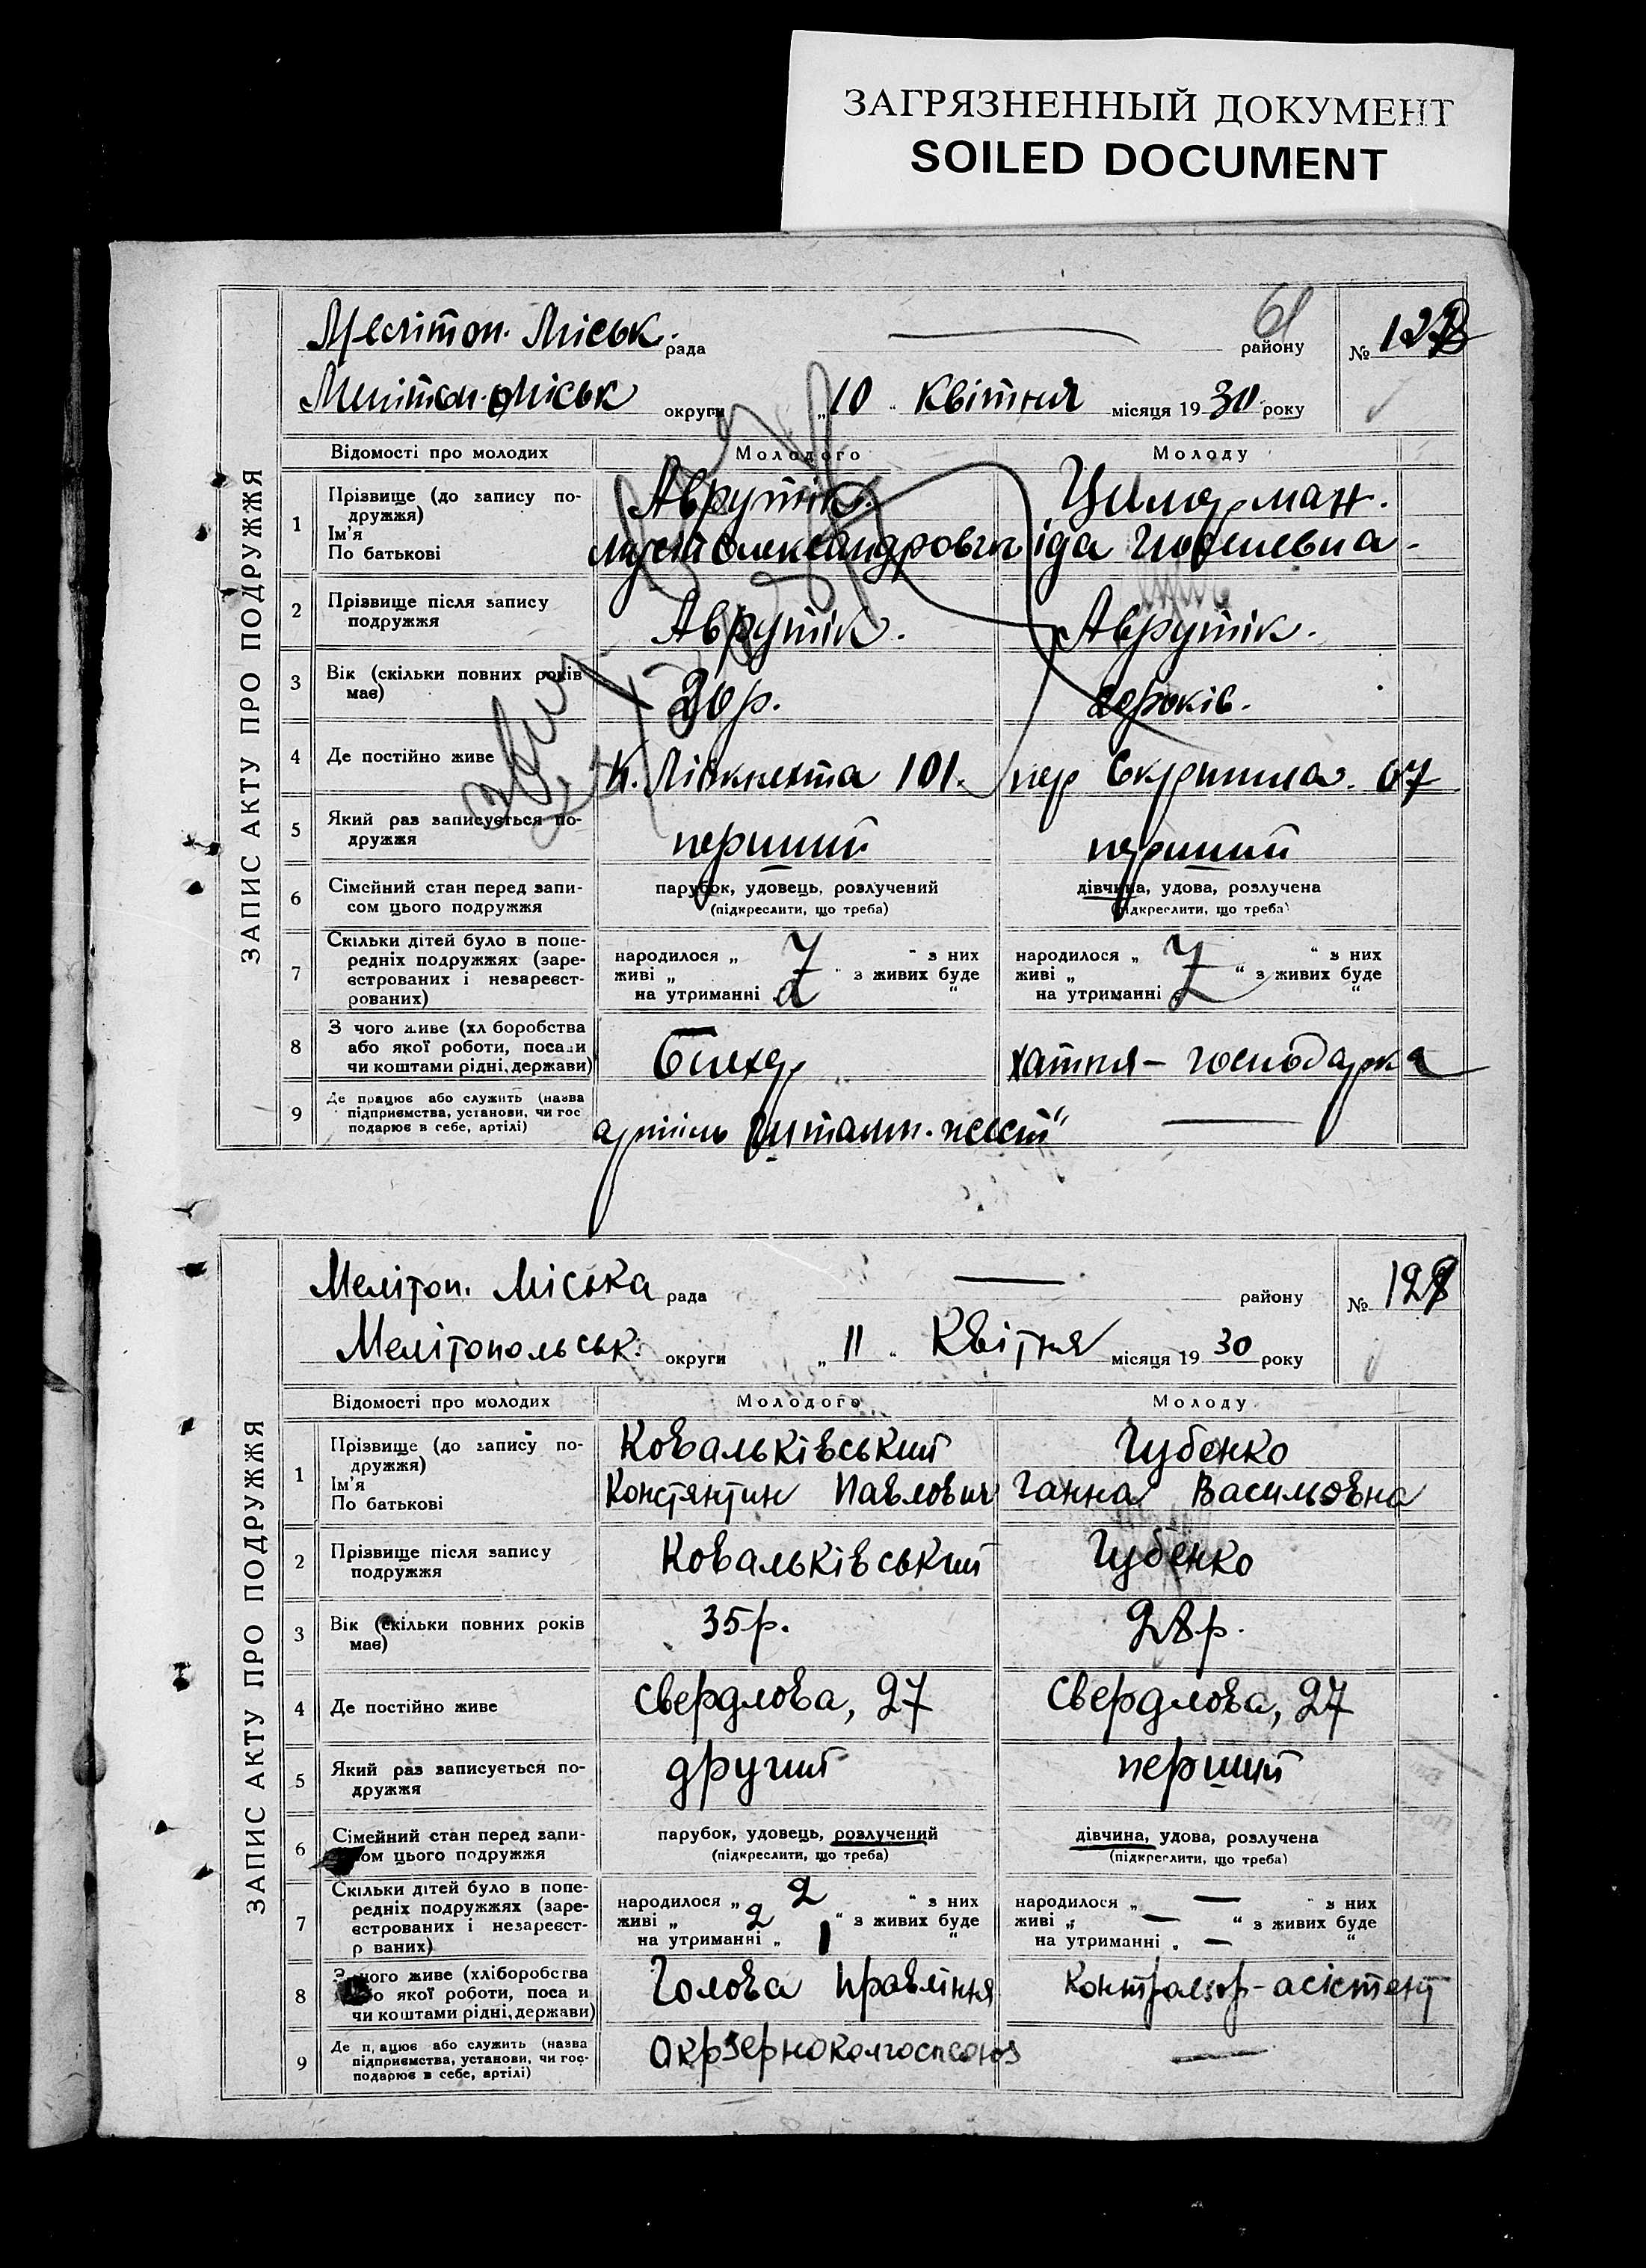 ЗАГРЯЗНЕННЫЙ ДОКУМЕНТ
SOILED DOCUMENT
ЗАПИС АКТУ ПРО ПОДРУЖЖЯ
Мелітоп. Міськ. рада району №
61
Мелітоп. Міськ округи „10“ Квітня місяця 1930 року
Відомості про молодих Молодого Молоду
1 Прізвище (до запису подружжя) Аврутік.
Ім'я
По батькові Олександрович Іда
2 Прізвище після запису подружжя Аврутік. Аврутік.
3 Вік (скільки повних років має) р. років.
4 Де постійно живе К. Лібкнехта 101. пер 67
5 Який раз записується подружжя перший перший
6 Сімейний стан перед записом цього подружжя парубок, удовець, розлучений дівчина, удова, розлучена
(підкреслити, що треба) (підкреслити, що треба)
7 Скільки дітей було в попередніх подружжях (зареєстрованих і незареєстрованих) народилося „ “ з них народилося „ “ з них
живі „ “ з живих буде живі „ “ з живих буде
на утриманні „ “ на утриманні „ “
8 З чого живе (хліборобства або якої роботи, посади чи коштами рідні, держави) хатня – господарка
9 Де працює або служить (назва підприємства, установи, чи господарює в себе, артілі) артіль —
ЗАПИС АКТУ ПРО ПОДРУЖЖЯ
Мелітоп. Міська рада — району № 128
Мелітопольськ. округи „11“ Квітня місяця 1930 року
Відомості про молодих Молодого Молоду
1 Прізвище (до запису подружжя) Ковальківський Губенко
Ім'я
По батькові Констянтин Павлович Ганна Васильовна
2 Прізвище після запису подружжя Ковальківський Губенко
3 Вік (скільки повних років має) 35 р. 28 р.
4 Де постійно живе Свердлова, 27 Свердлова, 27
5 Який раз записується подружжя другий перший
6 Сімейний стан перед записом цього подружжя парубок, удовець, розлучений дівчина, удова, розлучена
(підкреслити, що треба) (підкреслити, що треба)
7 Скільки дітей було в попередніх подружжях (зареєстрованих і незареєстрованих) народилося „ 2 “ з них народилося „ — “ з них
живі „ 2 “ з живих буде живі „ — “ з живих буде
на утриманні „ 1 “ на утриманні „ — “
8 З чого живе (хліборобства або якої роботи, посади чи коштами рідні, держави) Голова Правління Контрольор-асістент
9 Де працює або служить (назва підприємства, установи, чи господарює в себе, артілі) Окрзерноколгоспсоюз —